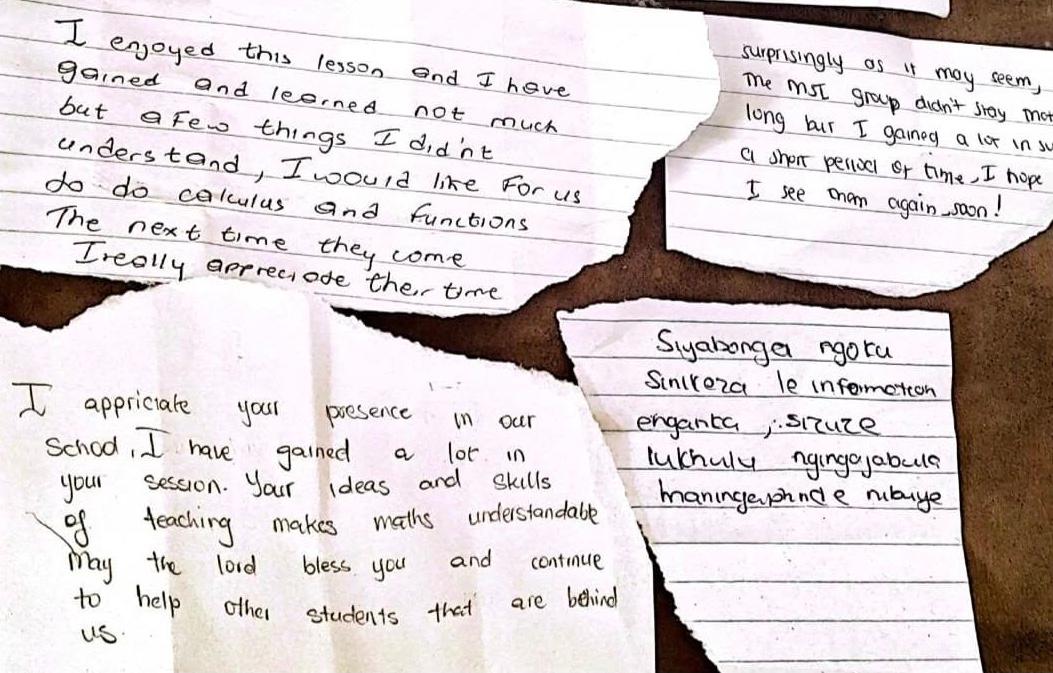 I enjoyed this lesson and I have
gained and learned not much
but a few things I didn't
understand, I woould like For us
do do calculus and functions
The next time they come
I really appreciate their time
surprisingly as it may seem,
The MSI group didn't stay
long but I gained a lot in
a short period of time, I hope
I see them again soon!
I appriciate your presence in our
School, I have gained a lot in
your session. Your ideas and skills
of teaching makes maths understandable
May the lord bless you and continue
to help other students that are behind
us.
Siyabonga ngoku
Sinikeza le information
enganka, sizuze
lukhulu ngingajabula
maningaphinde nibuye